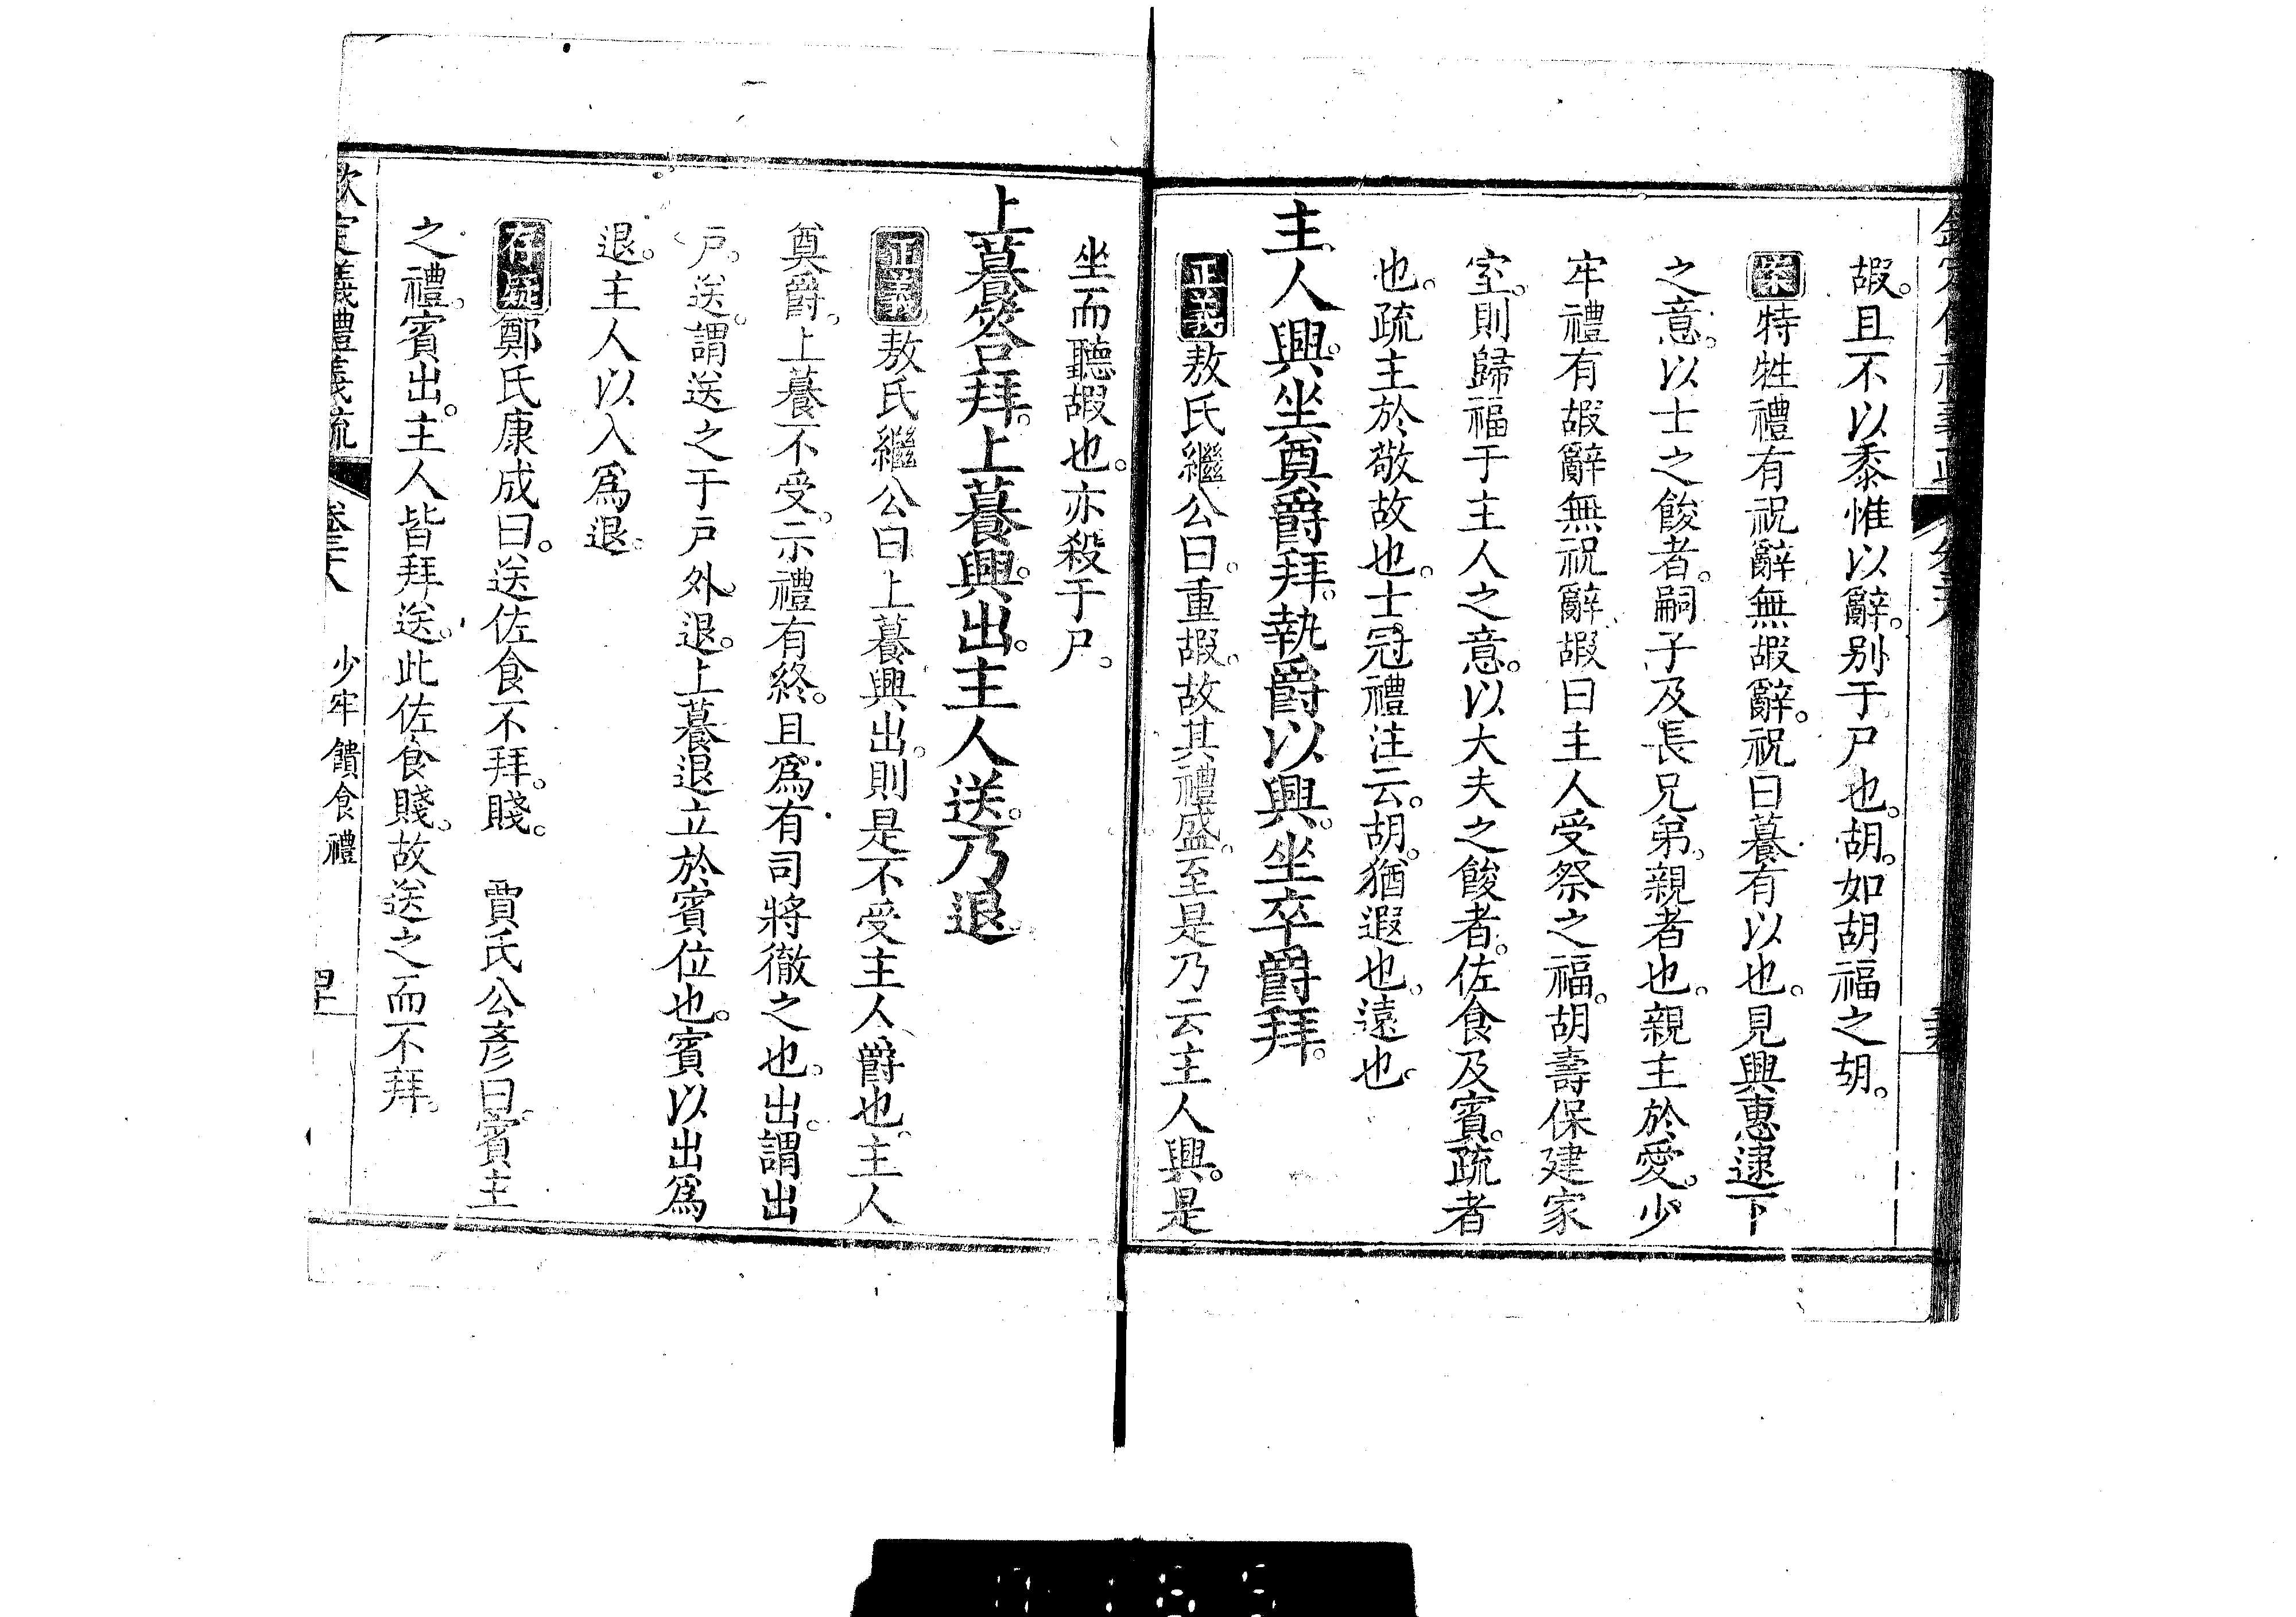 嘏。且不以黍惟以辭。别于尸也。胡。如胡福之胡。
案特牲禮有祝辭無嘏辭。祝曰䉵有以也。見興惠逮下
之意。以士之餕者。嗣子及長兄弟。親者也。親主於愛。少
牢禮有嘏辭無祝辭嘏曰主人受祭之福。胡壽保建家
室。則歸福于主人之意。以大夫之餕者。佐食及賓。疏者
也。疏主於敬故也。士冠禮注云。胡。猶遐也。遠也。
主人興。坐奠爵拜。執爵以興。坐卒爵拜。
正義敖氏繼公曰。重嘏。故其禮盛。至是乃云主人興。是
坐而聽嘏也。亦殺于尸。
上䉵答拜。上䉵興。出。主人送。乃退。
正義敖氏繼公曰上䉵興出。則是不受主人爵也。主人
奠爵。上䉵不受。示禮有終。且爲有司將徹之也。出。謂出
戸。送。謂送之于戸外。退。上䉵退立於賓位也。賓以出爲
退。主人以入爲退。
存疑鄭氏康成曰。送佐食不拜。賤。 賈氏公彥曰。賓主
之禮。賓出。主人皆拜送。此佐食賤。故送之而不拜。
欽定儀禮義疏 卷三十八 少牢饋食禮